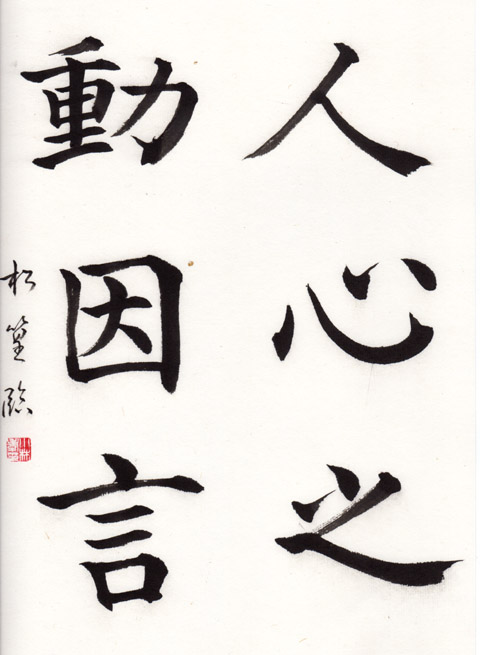 人心之
動因言
松篁臨